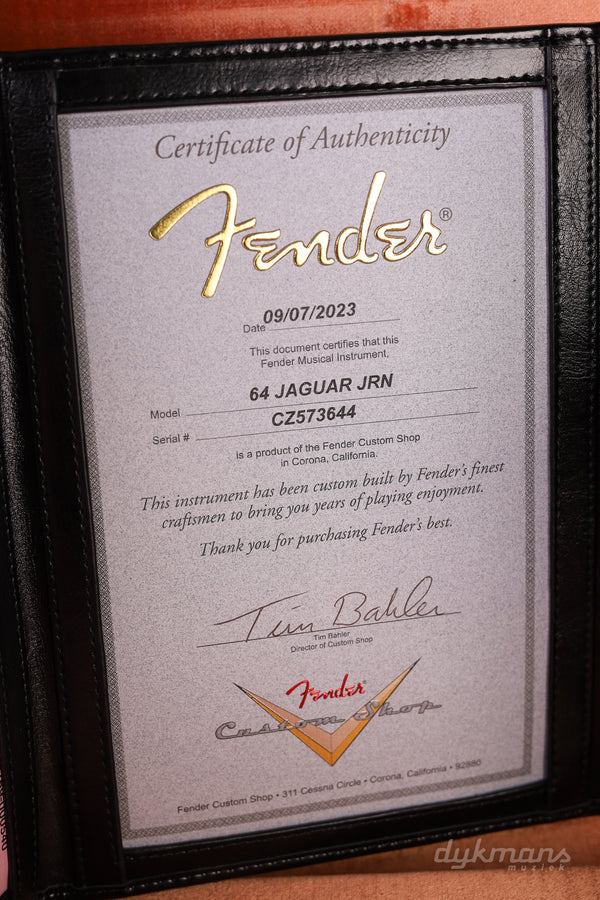 Certificate of Authenticity
Fender®
09/07/2023
Date
This document certifies that this
Fender Musical Instrument,
Model 64 JAGUAR JRN
Serial # CZ573644
is a product of the Fender Custom Shop
in Corona, California.
This instrument has been custom built by Fender's finest
craftsmen to bring you years of playing enjoyment.
Thank you for purchasing Fender's best.
Tim Bahler
Tim Bahler
Director of Custom Shop
Fender®
Custom Shop
Fender Custom Shop • 311 Cessna Circle • Corona, California • 92880
dykmans
muziek